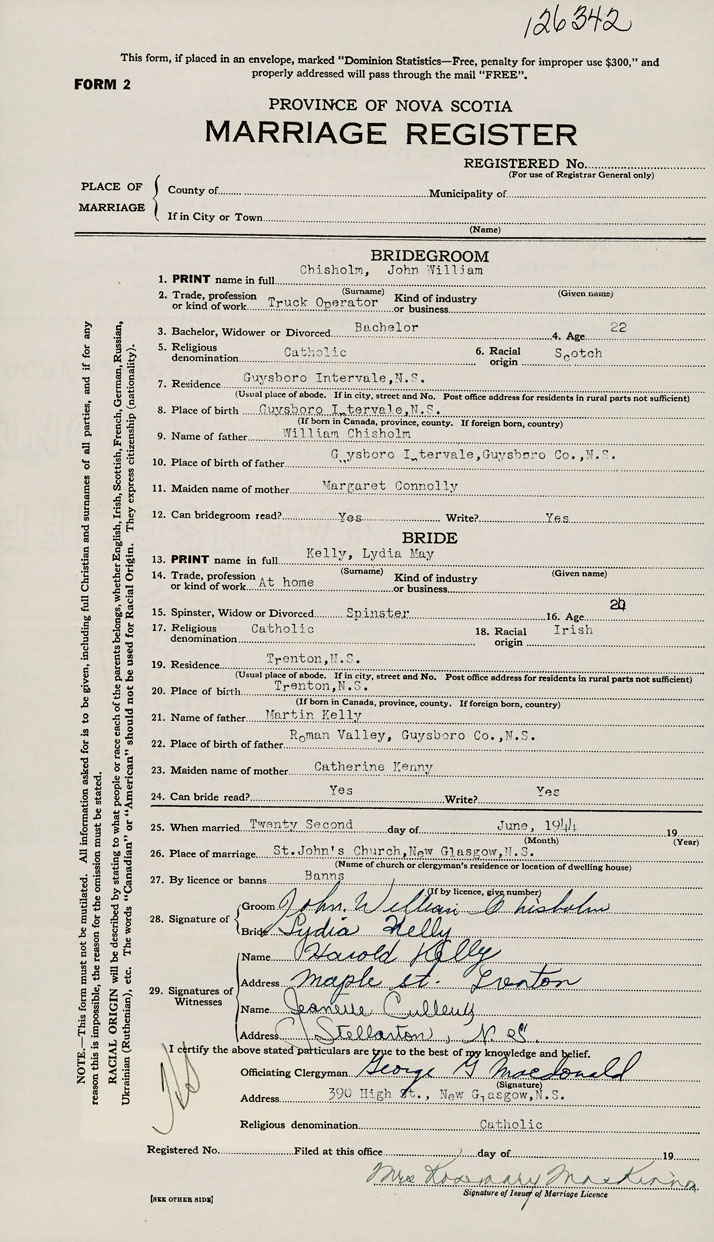 126342
This form, if placed in an envelope, marked "Dominion Statistics—Free, penalty for improper use $300," and
properly addressed will pass through the mail "FREE".
FORM 2
PROVINCE OF NOVA SCOTIA
MARRIAGE REGISTER
REGISTERED No.
(For use of Registrar General only)
PLACE OF MARRIAGE
County of Municipality of
If in City or Town
(Name)
BRIDEGROOM
1. PRINT name in full Chisholm, John William
(Surname) (Given name)
2. Trade, profession or kind of work Truck Operator Kind of industry or business
3. Bachelor, Widower or Divorced Bachelor 4. Age 22
5. Religious denomination Catholic 6. Racial origin Scotch
7. Residence Guysboro Intervale,N.S.
(Usual place of abode. If in city, street and No. Post office address for residents in rural parts not sufficient)
8. Place of birth Guysboro Intervale,N.S.
(If born in Canada, province, county. If foreign born, country)
9. Name of father William Chisholm
10. Place of birth of father Guysboro Intervale,Guysboro Co.,N.S.
11. Maiden name of mother Margaret Connolly
12. Can bridegroom read? Yes Write? Yes
BRIDE
13. PRINT name in full Kelly, Lydia May
(Surname) (Given name)
14. Trade, profession or kind of work At home Kind of industry or business
15. Spinster, Widow or Divorced Spinster 16. Age
17. Religious denomination Catholic 18. Racial origin Irish
19. Residence Trenton,N.S.
(Usual place of abode. If in city, street and No. Post office address for residents in rural parts not sufficient)
20. Place of birth Trenton,N.S.
(If born in Canada, province, county. If foreign born, country)
21. Name of father Martin Kelly
22. Place of birth of father Roman Valley, Guysboro Co.,N.S.
23. Maiden name of mother Catherine Kenny
24. Can bride read? Yes Write? Yes
25. When married Twenty Second day of June, 1944 19
(Month) (Year)
26. Place of marriage St.John's Church,New Glasgow,N.S.
(Name of church or clergyman's residence or location of dwelling house)
27. By licence or banns Banns
(If by licence, give number)
28. Signature of
Groom John William Chisholm
Bride Lydia Kelly
29. Signatures of Witnesses
Name Harold Kelly
Address Maple st. Trenton
Name Jeanette
Address Stellarton, N.S.
I certify the above stated particulars are true to the best of my knowledge and belief.
Officiating Clergyman George G Macdonald
(Signature)
Address 390 High St., New Glasgow,N.S.
Religious denomination Catholic
Registered No. Filed at this office day of 19
Mrs Rosemary MacKinnon
Signature of Issuer of Marriage Licence
[SEE OTHER SIDE]
NOTE.—This form must not be mutilated. All information asked for is to be given, including full Christian and surnames of all parties, and if for any
reason this is impossible, the reason for the omission must be stated.
RACIAL ORIGIN will be described by stating to what people or race each of the parents belongs, whether English, Irish, Scottish, French, German, Russian,
Ukrainian (Ruthenian), etc. The words "Canadian" or "American" should not be used for Racial Origin. They express citizenship (nationality).